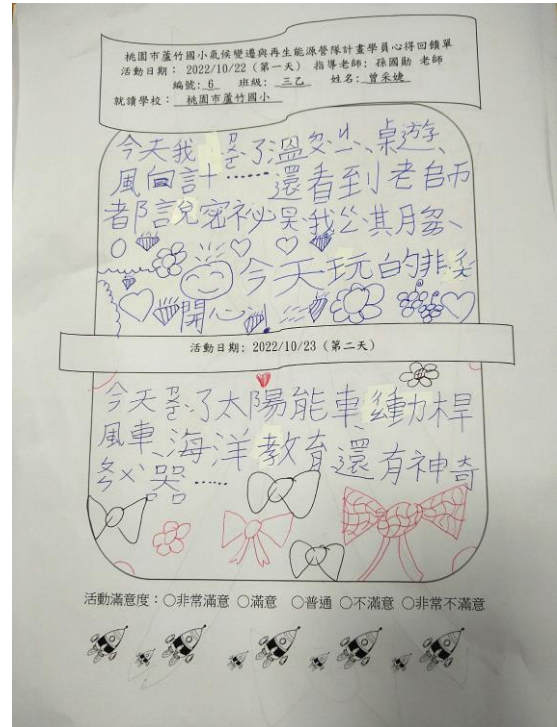 桃園市蘆竹國小氣候變遷與再生能源營隊計畫學員心得回饋單
活動日期： 2022/10/22（第一天） 指導老師：孫國勛 老師
編號: 6 班級: 三乙 姓名: 曾采婕
就讀學校： 桃園市蘆竹國小
今天我 了溫 、桌遊、
風向計……還看到老師
都說密祕 我
今天玩的非
開心
活動日期：2022/10/23（第二天）
今天 了太陽能車、 動桿
風車、海洋教育還有神奇
器……
活動滿意度：○非常滿意 ○滿意 ○普通 ○不滿意 ○非常不滿意